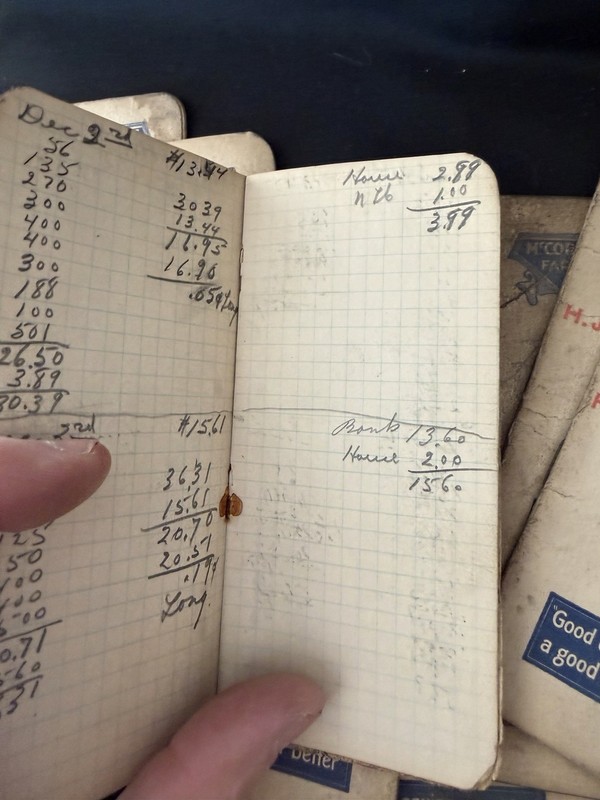 Dec 2nd
56
135
270
300
400
400
300
188
100
501
26.50
3.89
30.39
$13.44
30.39
13.44
16.95
16.90
.05¢
House 2.89
1.00
3.89
2nd
$15.61
36.31
15.61
20.70
20.51
.19¢
Long
125
50
00
00
00
0.71
5.60
.31
Bank 13.60
House 2.00
15.60
H.J
"Good
a good
better